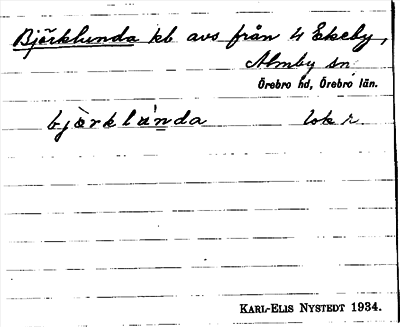 Björklunda kb avs från 4 Ekeby,
Almby sn
Örebro hd, Örebro län.
bjö̀rklùnda lok r.
KARL-ELIS NYSTEDT 1934.